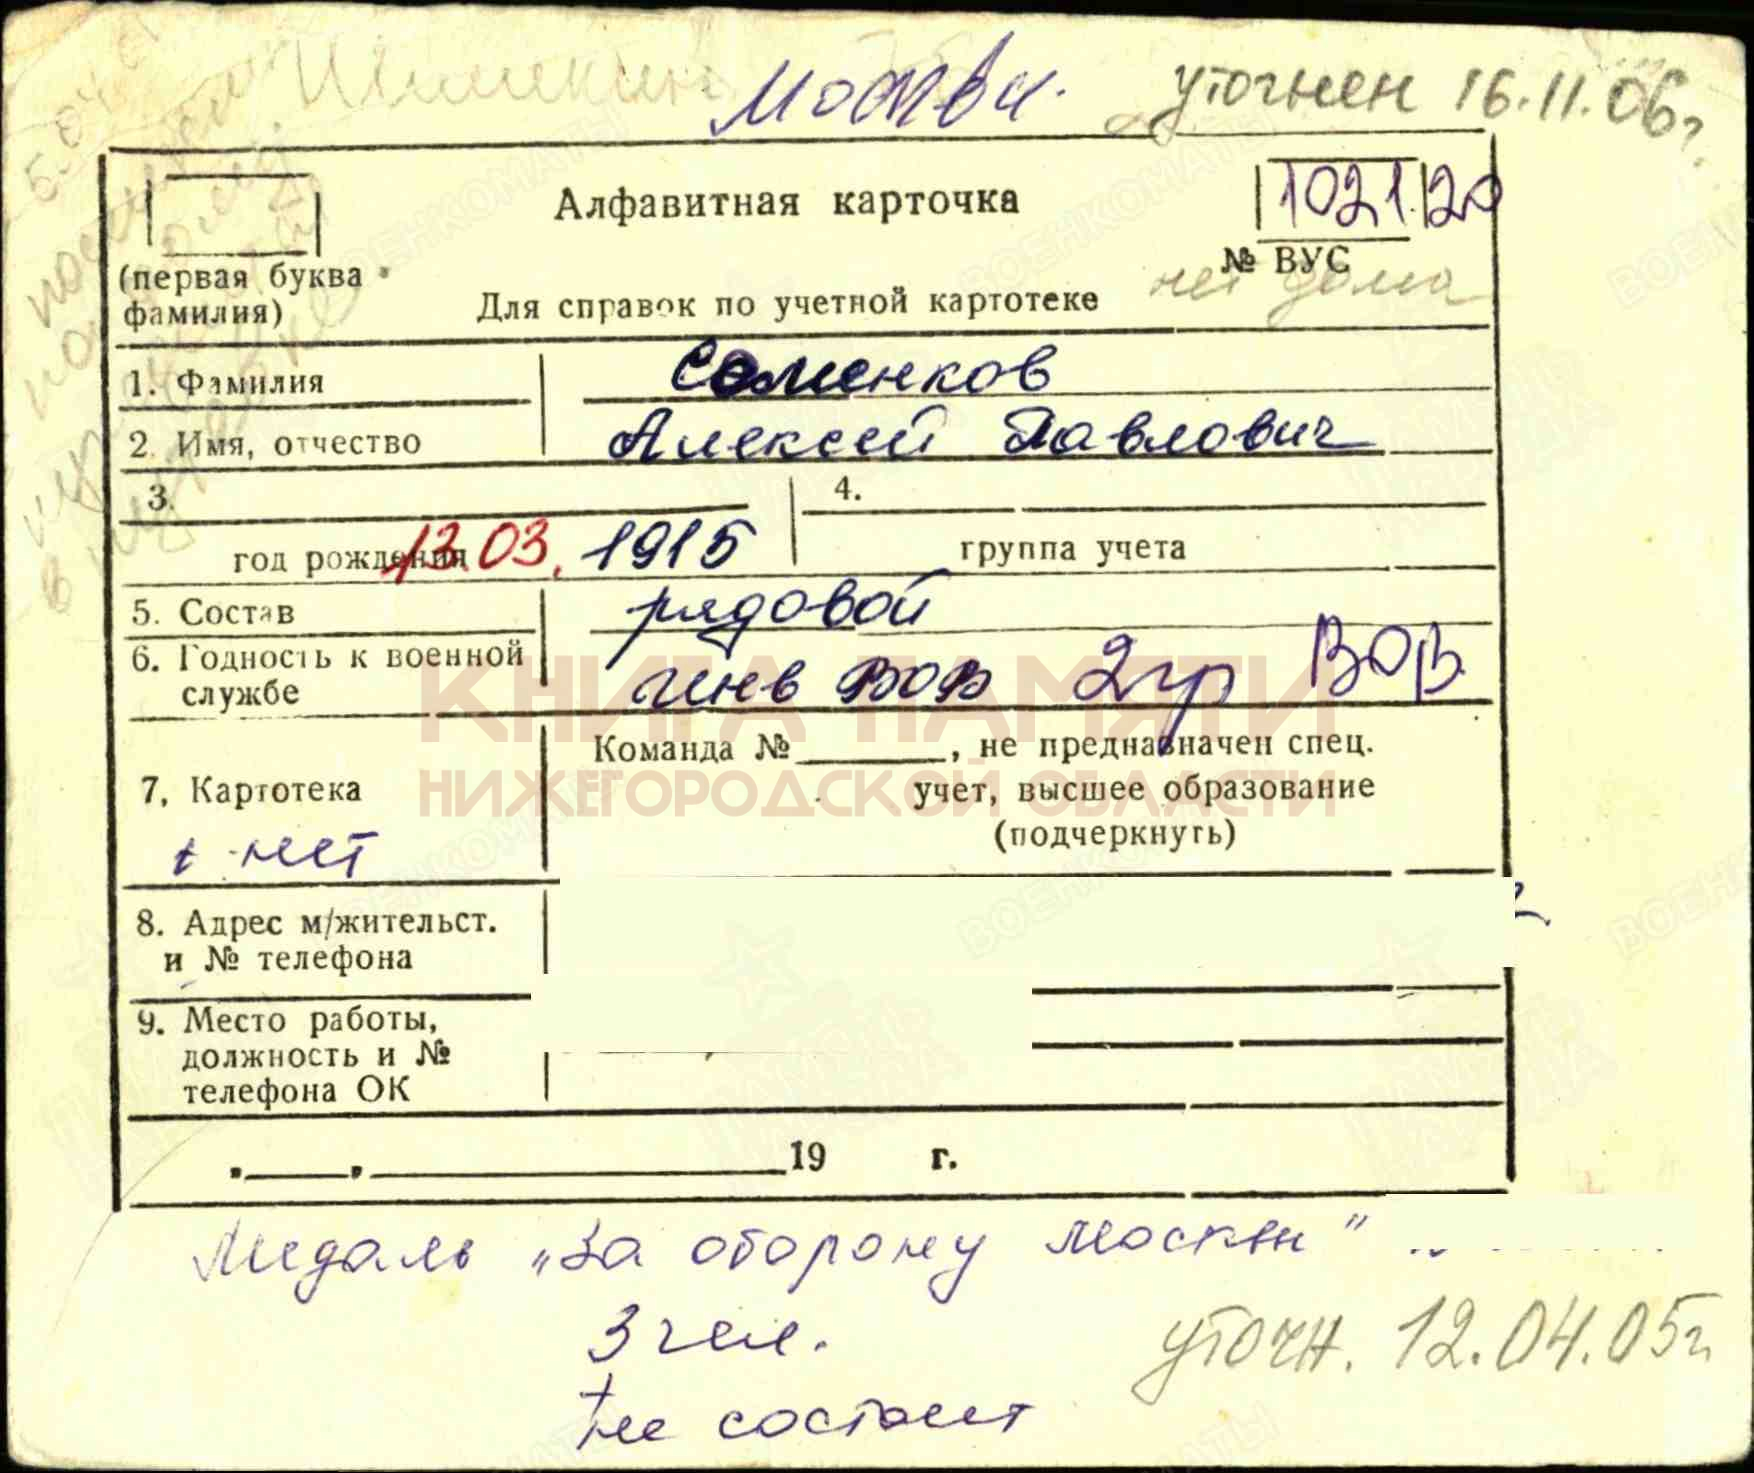 Москвы.
уточнен 16.11.06г.
Алфавитная карточка
1021 20
№ ВУС
(первая буква
фамилия)
нет дома
Для справок по учетной картотеке
1. Фамилия Семенков
2. Имя, отчество Алексей Павлович
3. 4.
год рождения 13.03. 1915 группа учета
5. Состав рядовой
6. Годность к военной
службе инв ВОВ 2 гр ВОВ
КНИГА ПАМЯТИ
НИЖЕГОРОДСКОЙ ОБЛАСТИ
Команда № , не предназначен спец.
7, Картотека учет, высшее образование
(подчеркнуть)
нет
8. Адрес м/жительст.
и № телефона
9. Место работы,
должность и №
телефона ОК
19 г.
Медаль „За оборону Москвы"
3 чел.
уточн. 12.04.05г
не состоит